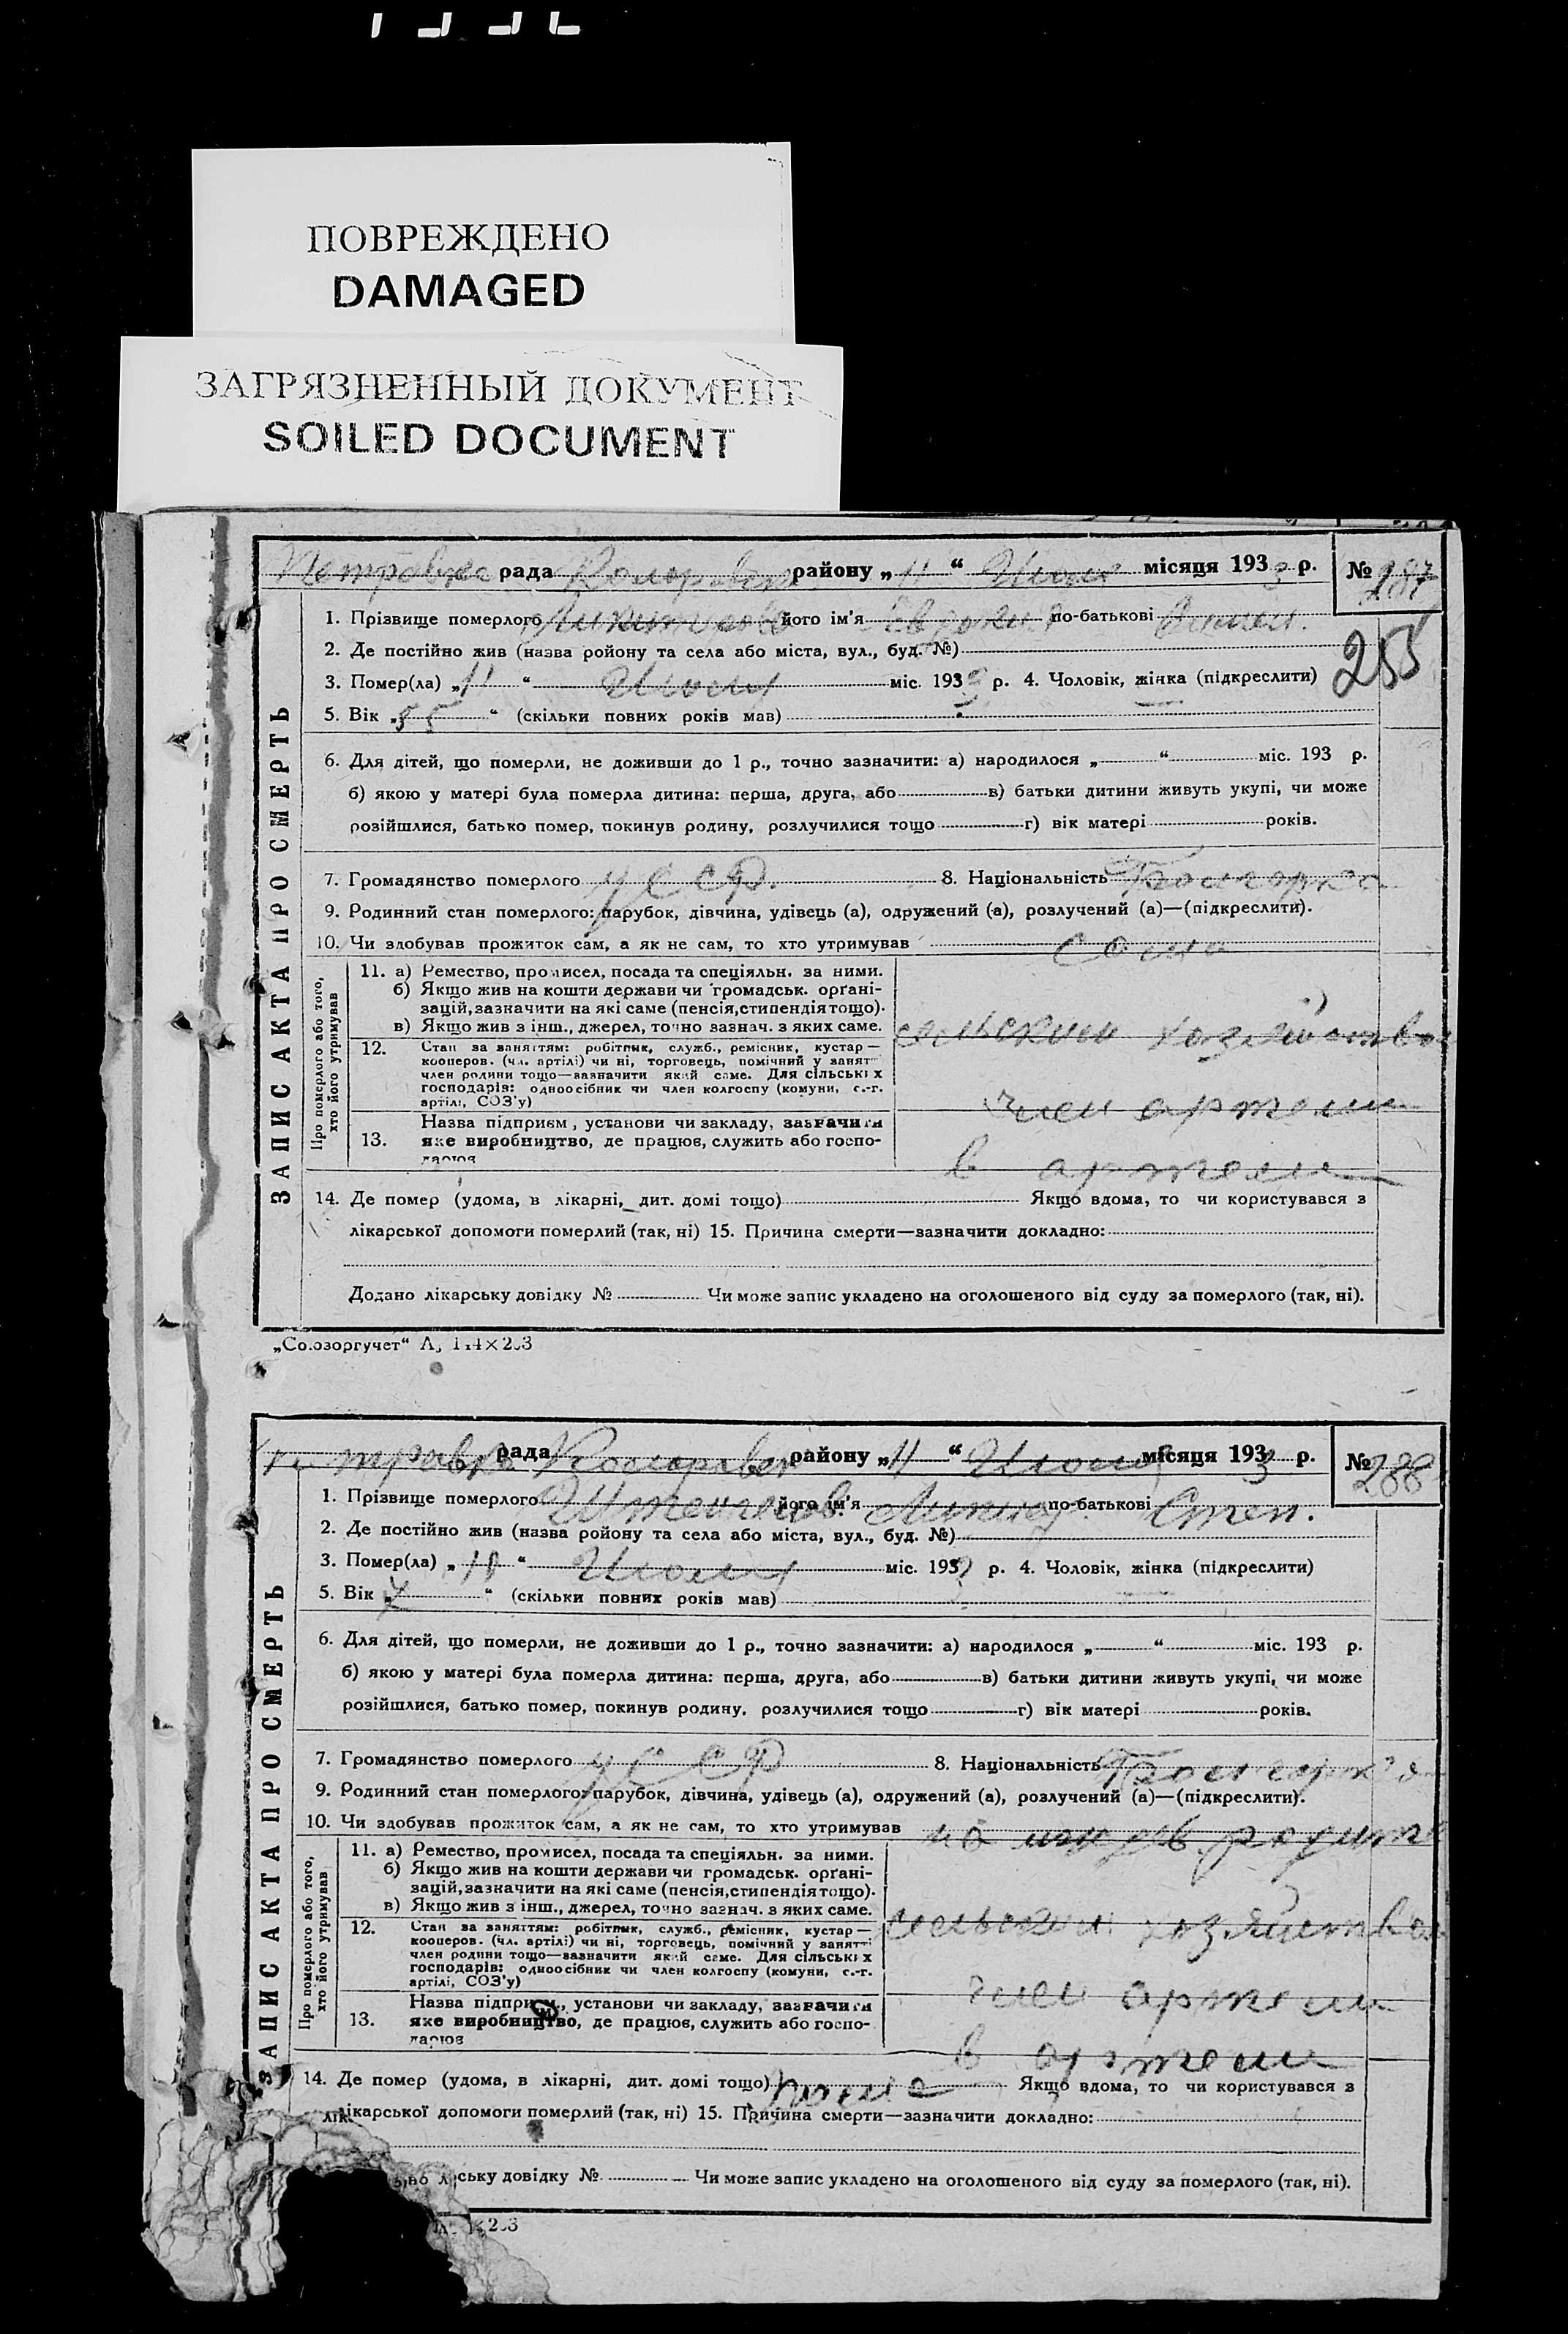 ПОВРЕЖДЕНО
DAMAGED
ЗАГРЯЗНЕННЫЙ ДОКУМЕНТ
SOILED DOCUMENT
рада району „11“ місяця 1933 р. № 287
ЗАПИС АКТА ПРО СМЕРТЬ
1. Прізвище померлого його ім'я по-батькові
255
2. Де постійно жив (назва ройону та села або міста, вул., буд. №)
3. Помер(ла) „11“ міс. 1933 р. 4. Чоловік, жінка (підкреслити)
5. Вік „55“ (скільки повних років мав)
6. Для дітей, що померли, не доживши до 1 р., точно зазначити: а) народилося „ “ міс. 193 р.
б) якою у матері була померла дитина: перша, друга, або в) батьки дитини живуть укупі, чи може
розійшлися, батько помер, покинув родину, розлучилися тощо г) вік матері років.
7. Громадянство померлого УССР. 8. Національність Болгарка
9. Родинний стан померлого: парубок, дівчина, удівець (а), одружений (а), розлучений (а)—(підкреслити).
10. Чи здобував прожиток сам, а як не сам, то хто утримував сама
Про померлого або того,
хто його утримував
11. а) Ремество, промисел, посада та спеціяльн. за ними.
б) Якщо жив на кошти держави чи громадськ. орґані-
зацій, зазначити на які саме (пенсія, стипендія тощо).
в) Якщо жив з інш., джерел, точно зазнач. з яких саме.
12. Стан за заняттям: робітник, служб., ремісник, кустар—
кооперов. (чл. артілі) чи ні, торговець, помічний у занятт
член родини тощо—зазначити який саме. Для сільських
господарів: одноосібник чи член колгоспу (комуни, с.-г.
артілі, СОЗ'у)
член артели
13. Назва підприєм., установи чи закладу, зазначити
яке виробництво, де працює, служить або госпо-
дарює
в артели
14. Де помер (удома, в лікарні, дит. домі тощо) Якщо вдома, то чи користувався з
лікарської допомоги померлий (так, ні) 15. Причина смерти—зазначити докладно:
Додано лікарську довідку № Чи може запис укладено на оголошеного від суду за померлого (так, ні).
„Союзоргучет“
рада району „11“ місяця 1933 р. № 288
ЗАПИС АКТА ПРО СМЕРТЬ
1. Прізвище померлого його ім'я по-батькові Степ.
2. Де постійно жив (назва ройону та села або міста, вул., буд. №)
3. Помер(ла) „ “ міс. 193 р. 4. Чоловік, жінка (підкреслити)
5. Вік „7“ (скільки повних років мав)
6. Для дітей, що померли, не доживши до 1 р., точно зазначити: а) народилося „ “ міс. 193 р.
б) якою у матері була померла дитина: перша, друга, або в) батьки дитини живуть укупі, чи може
розійшлися, батько помер, покинув родину, розлучилися тощо г) вік матері років.
7. Громадянство померлого УССР 8. Національність Болгарка
9. Родинний стан померлого: парубок, дівчина, удівець (а), одружений (а), розлучений (а)—(підкреслити).
10. Чи здобував прожиток сам, а як не сам, то хто утримував
Про померлого або того,
хто його утримував
11. а) Ремество, промисел, посада та спеціяльн. за ними.
б) Якщо жив на кошти держави чи громадськ. орґані-
зацій, зазначити на які саме (пенсія, стипендія тощо).
в) Якщо жив з інш., джерел, точно зазнач. з яких саме.
12. Стан за заняттям: робітник, служб., ремісник, кустар—
кооперов. (чл. артілі) чи ні, торговець, помічний у занятті
член родини тощо—зазначити який саме. Для сільських
господарів: одноосібник чи член колгоспу (комуни, с.-г.
артілі, СОЗ'у)
член артели
13. Назва підприєм., установи чи закладу, зазначити
яке виробництво, де працює, служить або госпо-
дарює
в артели
14. Де помер (удома, в лікарні, дит. домі тощо) Якщо вдома, то чи користувався з
лікарської допомоги померлий (так, ні) 15. Причина смерти—зазначити докладно:
ську довідку № Чи може запис укладено на оголошеного від суду за померлого (так, ні).